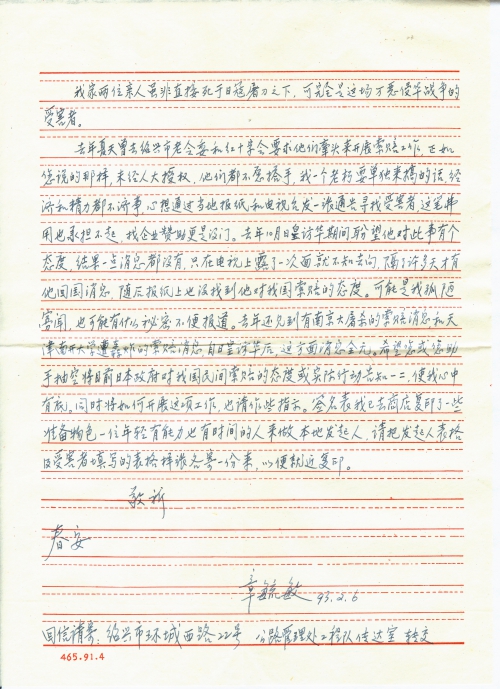 我家两位亲人虽非直接死于日寇屠刀之下，可完全是这场万恶侵华战争的
受害者。
去年夏天曾去绍兴市老令委和红十字会要求他们牵头来开展索赔工作，正如
您说的那样，未经人大授权，他们都不愿搭手，我一个老朽要单独来搞的话，经
济和精力都不济事，心想通过当地报纸和电视台发一张通告寻找受害者，这笔费
用也承担不起，找企业赞助更是没门。去年10月日皇访华期间盼望他对此事有个
态度，结果一点消息都没有，只在电视上露了一次面就不知去向，隔了许多天才有
他回国消息，随后报纸上也没找到他对我国索赔的态度。可能是我孤陋
寡闻，也可能有什么秘密不便报道。去年还见到有南京大屠杀的索赔消息和天
津南开大学遭轰炸的索赔消息，自日皇访华后，这方面消息全无。希望您或您助
手抽空将目前日本政府对我国民间索赔的态度或实际行动告知一二，使我心中
有底。同时将如何开展这项工作，也请作些指示。签名表我已去商店复印了一些
准备物色一位年轻有能力也有时间的人来做本地发起人，请把发起人表格
及受害者填写的表格样张各寄一份来，以便就近复印。
敬祈
春安
章毓敏 93.2.6
回信请寄：绍兴市环城西路22号 公路管理处工程队传达室 转交
465.91.4